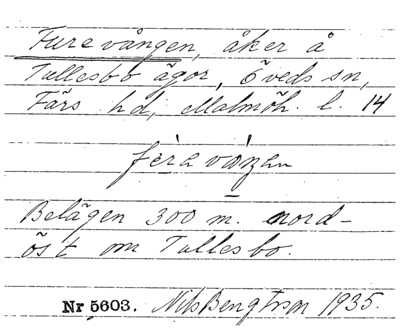 Furevången, åker å
Tullesbo ägor, Öveds sn,
Färs hd, Malmöh. l. 14
fèravàŋan
Belägen 300 m. nord-
öst om Tullesbo.
Nr 5603. Nils Bengtson 1935.